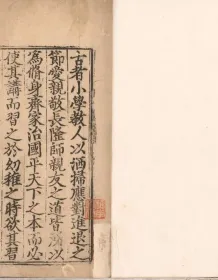 古者小學教人以洒掃應對進退之
節愛親敬長隆師親友之道皆所以
為脩身齊家治國平天下之本而必
使其講而習之於幼穉之時欲其習